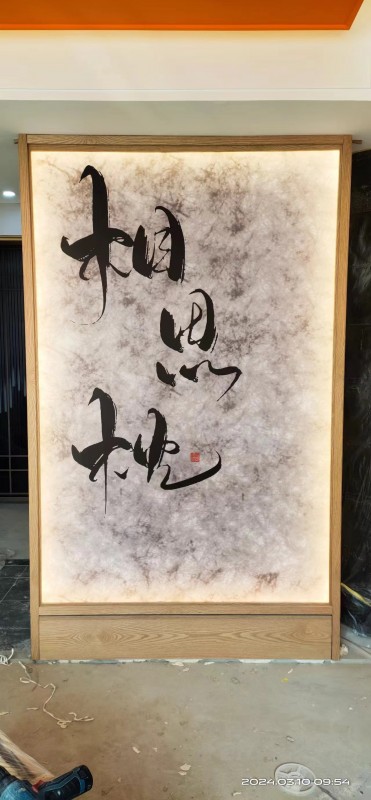 相
思
枕
2024.03.10 09:54